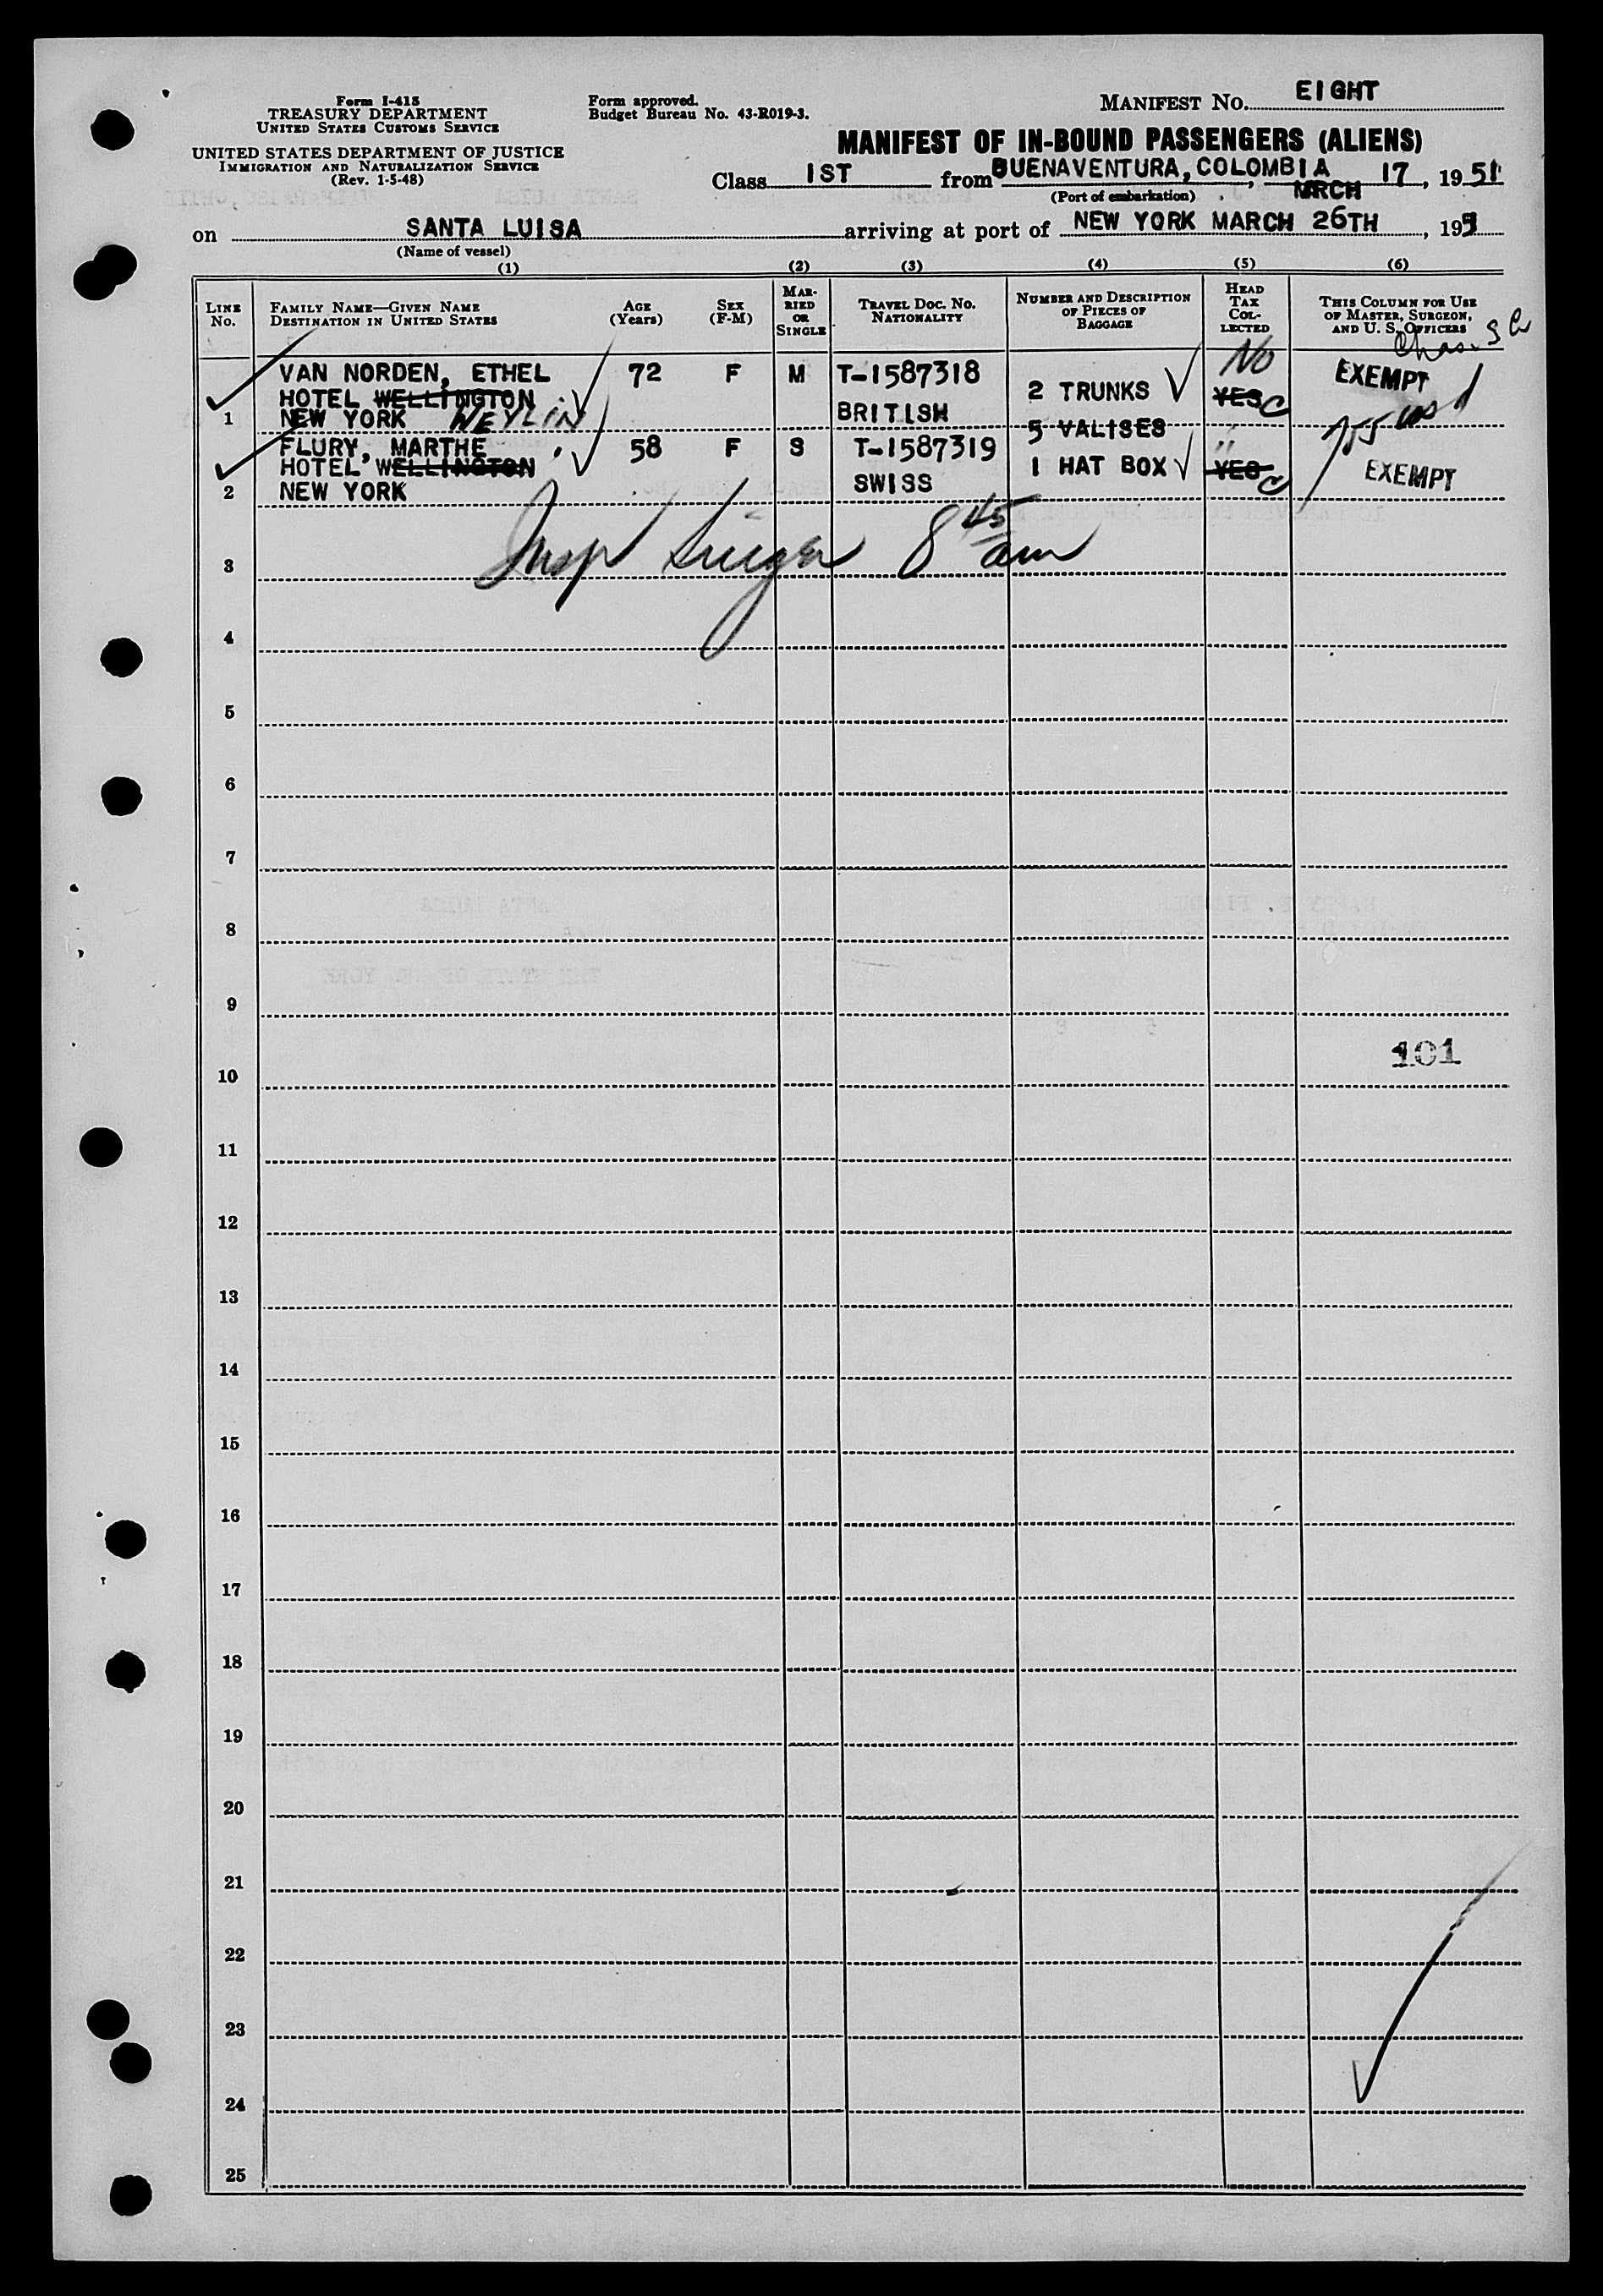 Form I-415
TREASURY DEPARTMENT
UNITED STATES CUSTOMS SERVICE
UNITED STATES DEPARTMENT OF JUSTICE
IMMIGRATION AND NATURALIZATION SERVICE
(Rev. 1-5-48)
Form approved.
Budget Bureau No. 43-R019-3.
MANIFEST NO. EIGHT
MANIFEST OF IN-BOUND PASSENGERS (ALIENS)
Class 1ST from BUENAVENTURA, COLOMBIA, MRCH 17, 1951
(Port of embarkation)
on SANTA LUISA arriving at port of NEW YORK MARCH 26TH, 195
(Name of vessel)
(1) (2) (3) (4) (5) (6)
LINE No.
FAMILY NAME—GIVEN NAME
DESTINATION IN UNITED STATES
AGE (Years)
SEX (F-M)
MARRIED OR SINGLE
TRAVEL DOC. NO.
NATIONALITY
NUMBER AND DESCRIPTION OF PIECES OF BAGGAGE
HEAD TAX COLLECTED
THIS COLUMN FOR USE OF MASTER, SURGEON, AND U. S. OFFICERS
VAN NORDEN, ETHEL 72 F M T-1587318 2 TRUNKS NO EXEMPT
HOTEL WELLINGTON YES
1 NEW YORK WEYLIN BRITISH 5 VALISES
FLURY, MARTHE 58 F S T-1587319 1 HAT BOX "
HOTEL WELLINGTON YES EXEMPT
2 NEW YORK SWISS
Insp 8 45 am
3
4
5
6
7
8
9
101
10
11
12
13
14
15
16
17
18
19
20
21
22
23
24
25